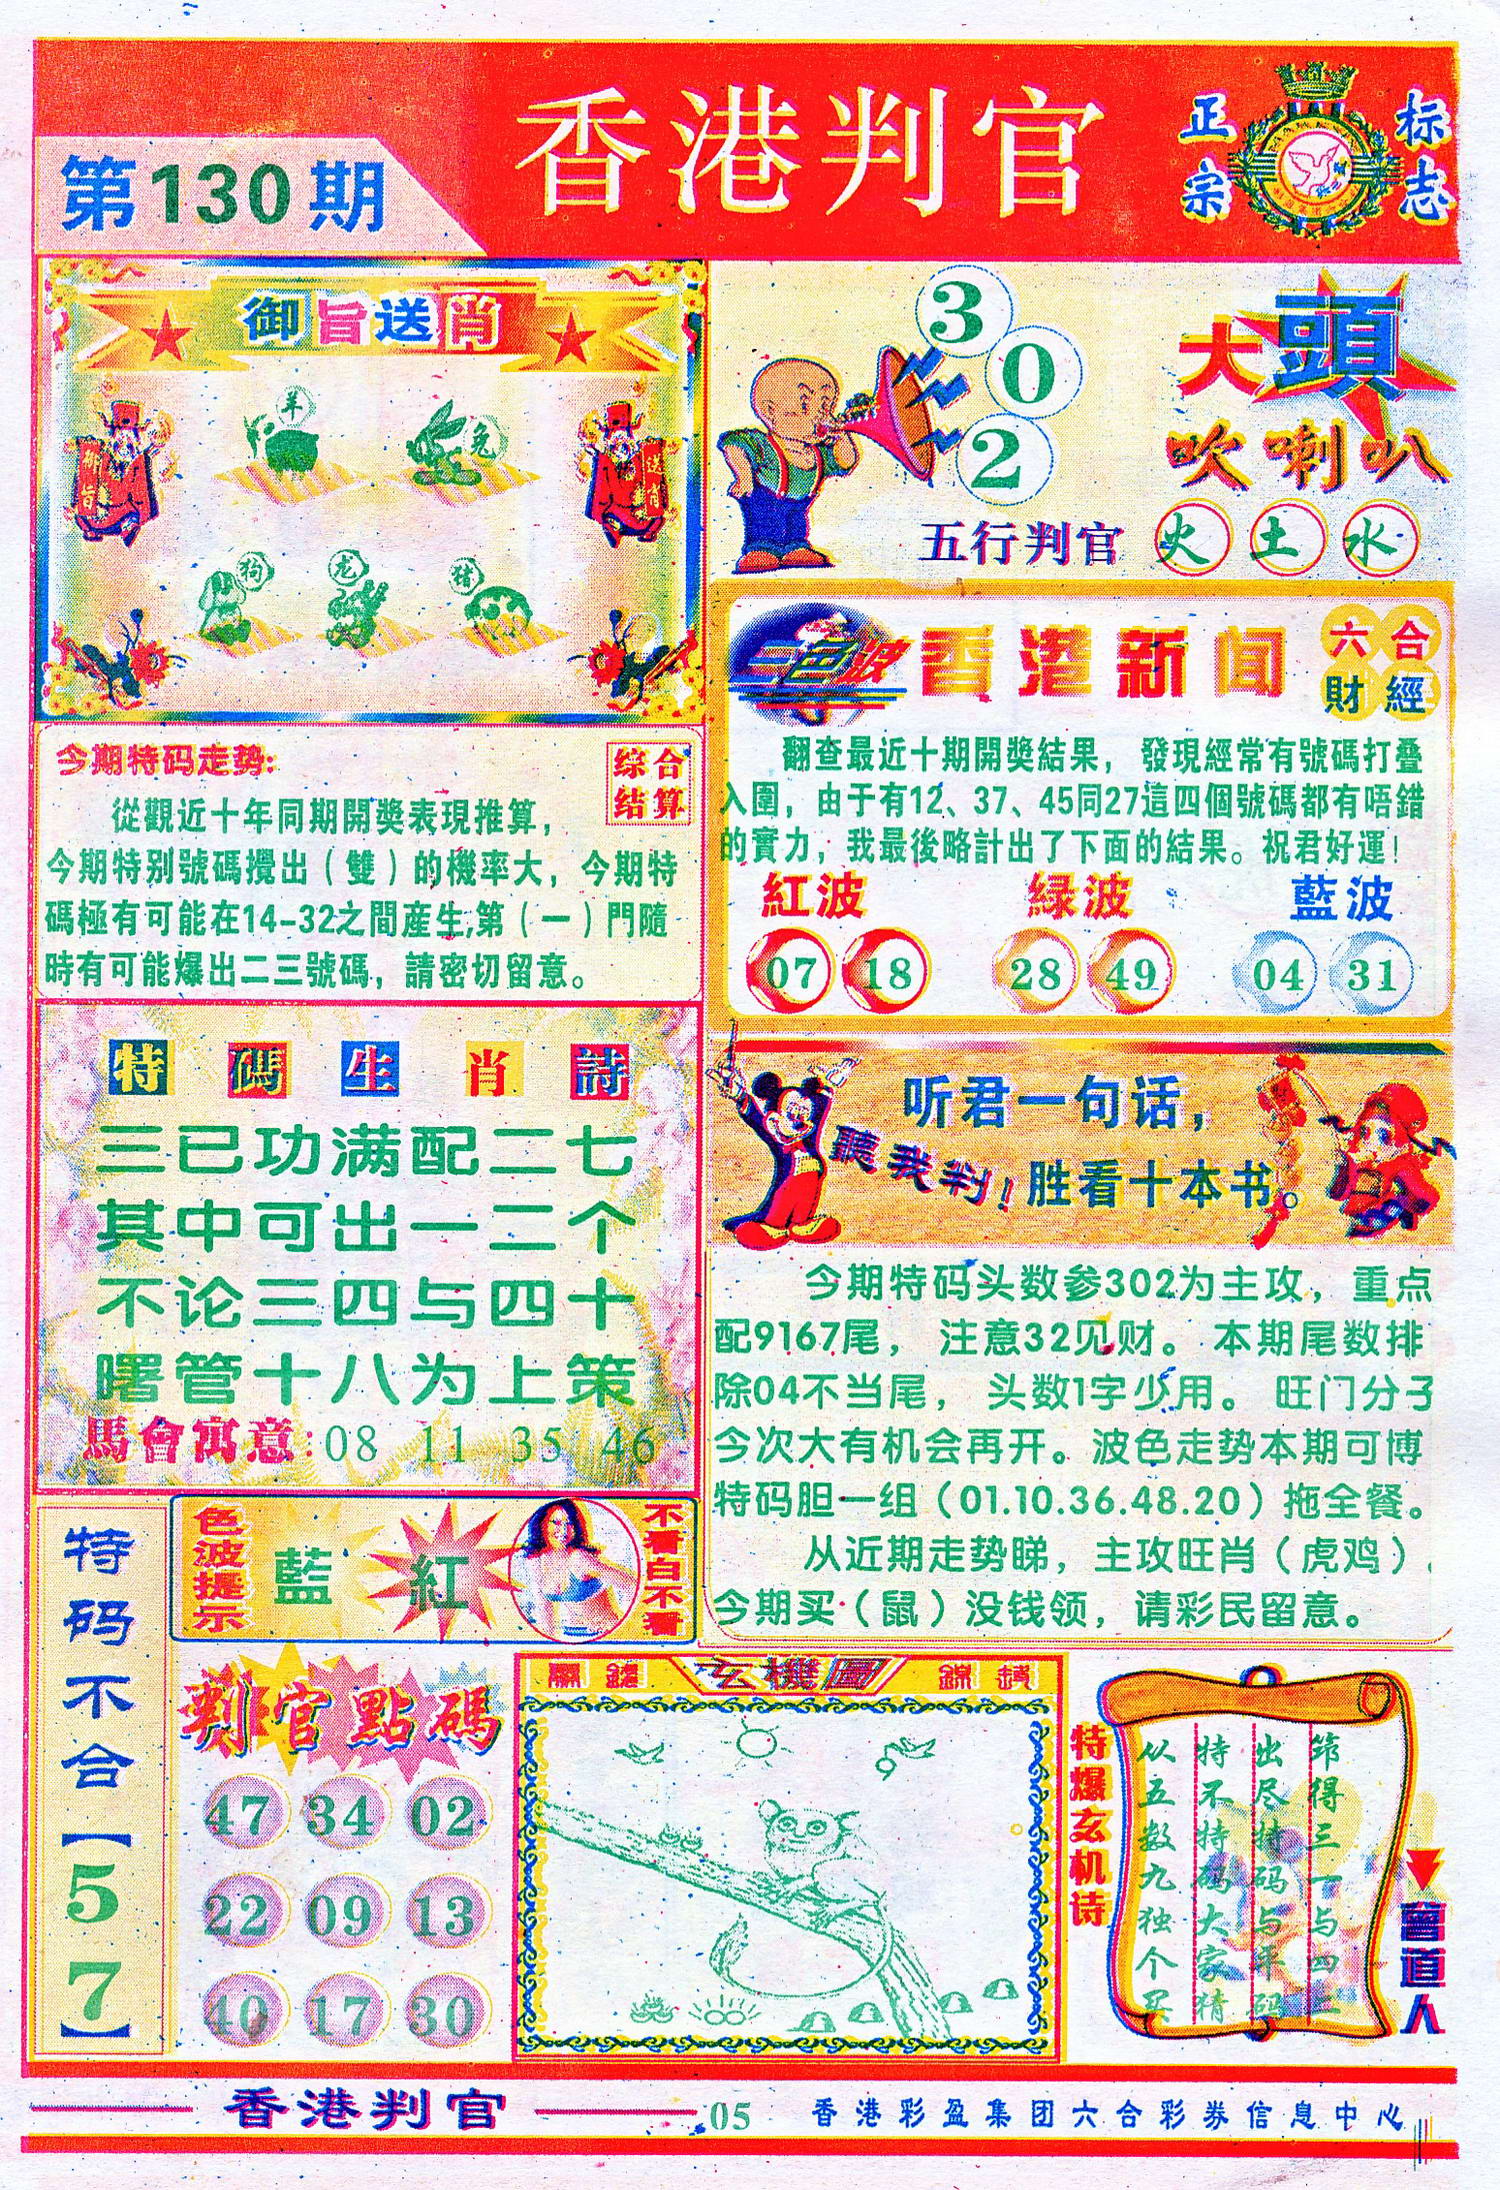 香港判官
正宗
标志
第130期
御旨送肖
羊
兔
御旨
送肖
狗
龙
猪
3
0
2
大頭
吹喇叭
五行判官 火 土 水
今期特码走势:
综合
结算
從觀近十年同期開獎表現推算，
今期特别號碼攪出（雙）的機率大，今期特
碼極有可能在14-32之間産生;第（一）門隨
時有可能爆出二三號碼，請密切留意。
三色波 香港新闻
六合
財經
翻查最近十期開獎結果，發現經常有號碼打叠
入圍，由于有12、37、45同27這四個號碼都有唔錯
的實力，我最後略計出了下面的結果。祝君好運！
紅波 緑波 藍波
07 18 28 49 04 31
特碼生肖詩
三已功满配二七
其中可出一二个
不论三四与四十
曙管十八为上策
馬會寓意:08 11 35 46
听君一句话，
聽我判!
胜看十本书。
今期特码头数参302为主攻，重点
配9167尾，注意32见财。本期尾数排
除04不当尾，头数1字少用。旺门分子
今次大有机会再开。波色走势本期可博
特码胆一组（01.10.36.48.20）拖全餐。
从近期走势睇，主攻旺肖（虎鸡）.
今期买（鼠）没钱领，请彩民留意。
特码不合【57】
色波提示
藍 紅
不看白不看
判官點碼
47 34 02
22 09 13
40 17 30
玄機圖
特爆玄机诗
从五数九独个买
特不特码大家猜
出尽特码与平码
得三一与四三
曾道人
香港判官
05
香港彩盈集团六合彩券信息中心